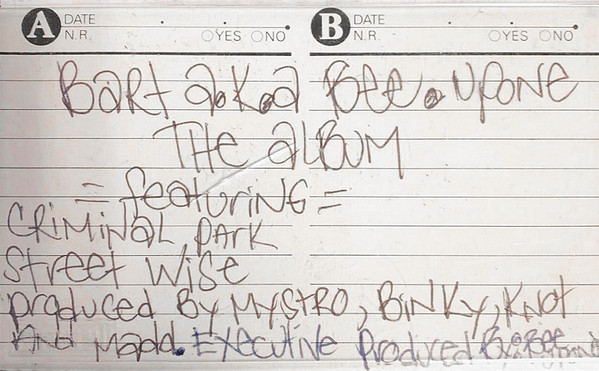 A DATE B DATE
N.R. YES NO N.R. YES NO
Bart a.k.a Bee.Upone
THE alBUM
= featuring =
CRiMiNal PARK
Street Wise
produced By MYSTRO, BiNKy, KNot
And Madd. Executive Produced By: Bee